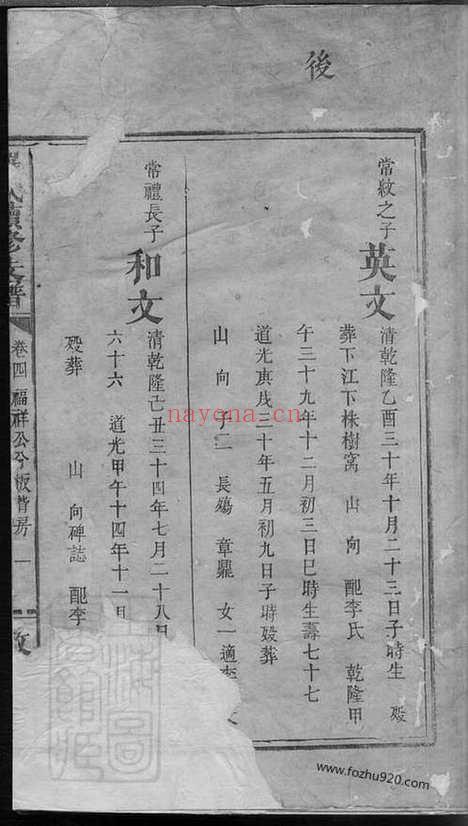 後
常紋之子
英文
清乾隆乙酉三十年十月二十三日子時生 歿
葬下江下株樹窩 山 向 配李氏 乾隆甲
午三十九年十二月初三日巳時生壽七十七
道光庚戌三十年五月初九日子時歿葬
山 向 子二 長殤 章鼎 女一適李
常禮長子
和文
清乾隆己丑三十四年七月二十八日
六十六 道光甲午十四年十一月
歿葬 山 向碑誌 配李
氏續修支譜
卷四 福祥公分板背房 一
nayona.cn
www.fozhu920.com